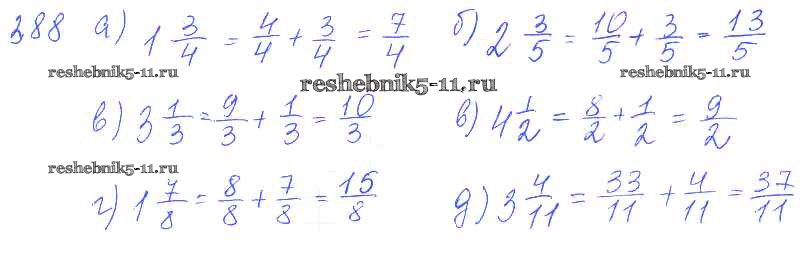 388 а) 1 3/4 = 4/4 + 3/4 = 7/4 б) 2 3/5 = 10/5 + 3/5 = 13/5
reshebnik5-11.ru reshebnik5-11.ru reshebnik5-11.ru
в) 3 1/3 = 9/3 + 1/3 = 10/3 в) 4 1/2 = 8/2 + 1/2 = 9/2
reshebnik5-11.ru
г) 1 7/8 = 8/8 + 7/8 = 15/8 д) 3 4/11 = 33/11 + 4/11 = 37/11